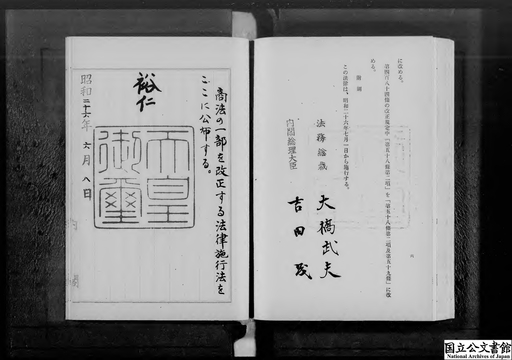 に改める。
第四百八十四條の改正規定中「第五十八條第二項」を「第五十八條第二項及第五十九條」に改
める。
附則
この法律は、昭和二十六年七月一日から施行する。
法務総裁 大橋武夫
内閣総理大臣 吉田茂
商法の一部を改正する法律施行法を
ここに公布する。
裕仁
天皇御璽
昭和二十六年六月八日
国立公文書館
National Archives of Japan